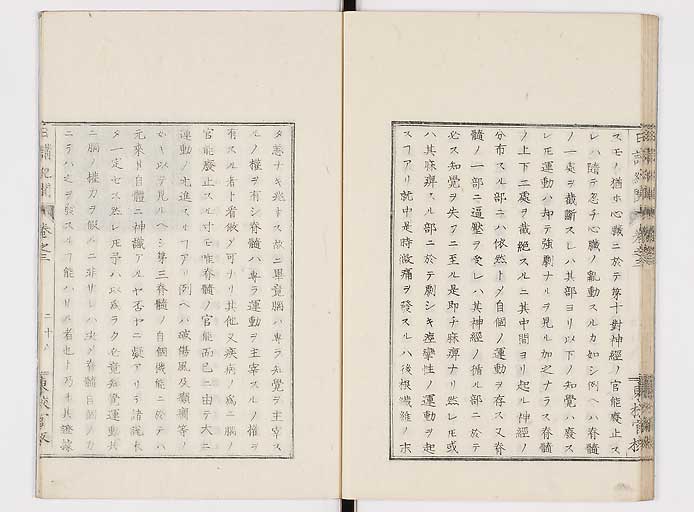 スモノ猶ホ心臓ニ於テ第十對神經ノ官能廢止ス
レハ隨テ忽チ心臓ノ亂動スルカ如シ例ヘハ脊髓
ノ一處ヲ截斷スレハ其部ヨリ以下ノ知覺ハ廢ス
レ𪜈運動ハ却テ強劇ナルヲ見ル加之ナラス脊髓
ノ上下二處ヲ截絶スルニ其中間ヨリ起ル神經ノ
分布スル部ニハ依然トメ自個ノ運動ヲ存ス又脊
髓ノ一部ニ逼壓ヲ受レハ其神經ノ循ル部ニ於テ
必ス知覺ヲ失フニ至ル是即チ麻痺ナリ然レ𪜈或
ハ其麻痺スル部ニ於テ劇シキ痙攣性ノ運動ヲ起
スフアリ就中是時激痛ヲ發スルハ後根纖維ノ未
タ恙ナキ兆トス故ニ畢竟腦ハ專ラ知覺ヲ主宰ス
ルノ權ヲ有シ脊髓ハ專ラ運動ヲ主宰スルノ權ヲ
有スル者ト看做ノ可ナリ其他又疾病ノ爲ニ腦ノ
官能廢止スル寸モ唯脊髓ノ官能而已ニ由テ大ニ
運動ノ亢進スルフアリ例ヘハ破傷風及癲癇等ノ
如キ以テ見ルヘシ第三脊髓ノ自個機能ニ於テハ
元來其自體ニ神識アルヤ否ヤニ疑アリテ諸説未
タ一定セス然レ𪜈予ハ以爲ラク
畢竟知覺運動共
ニ腦ノ權力ヲ假ルニ非サレハ決メ脊髓自個ノカ
ニテハ之ヲ發スルフ能ハサル者也ト乃チ其證據
日講紀聞
卷之三
二十八
東校官版